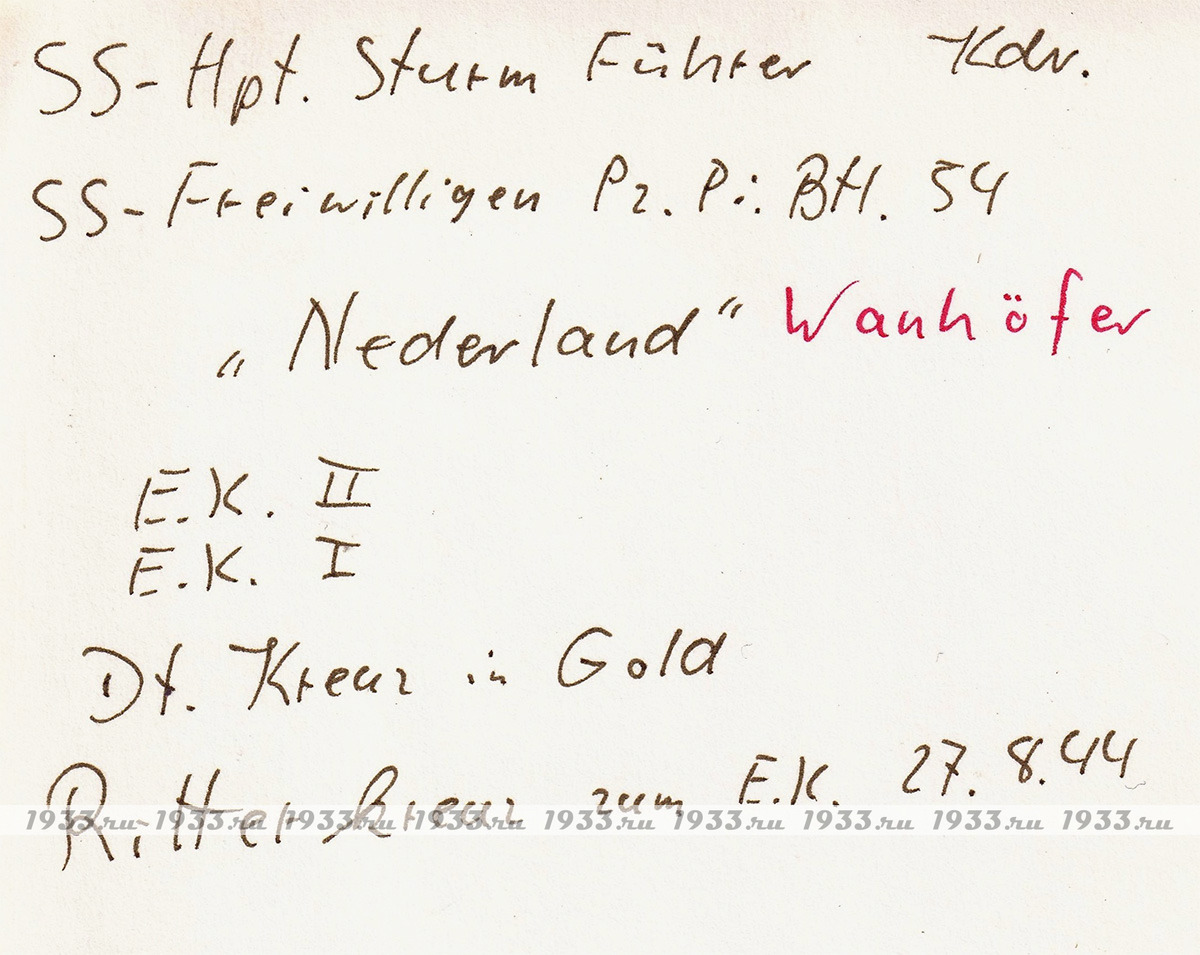 SS-Hpt. Sturm Führer Kdr.
SS-Freiwilligen Pz. Pi. Btl. 54
„Nederland" Wanhöfer
E.K. II
E.K. I
Dt. Kreuz in Gold
Ritterkreuz zum E.K. 27.8.44
1933.ru 1933.ru 1933.ru 1933.ru 1933.ru 1933.ru 1933.ru 1933.ru 1933.ru